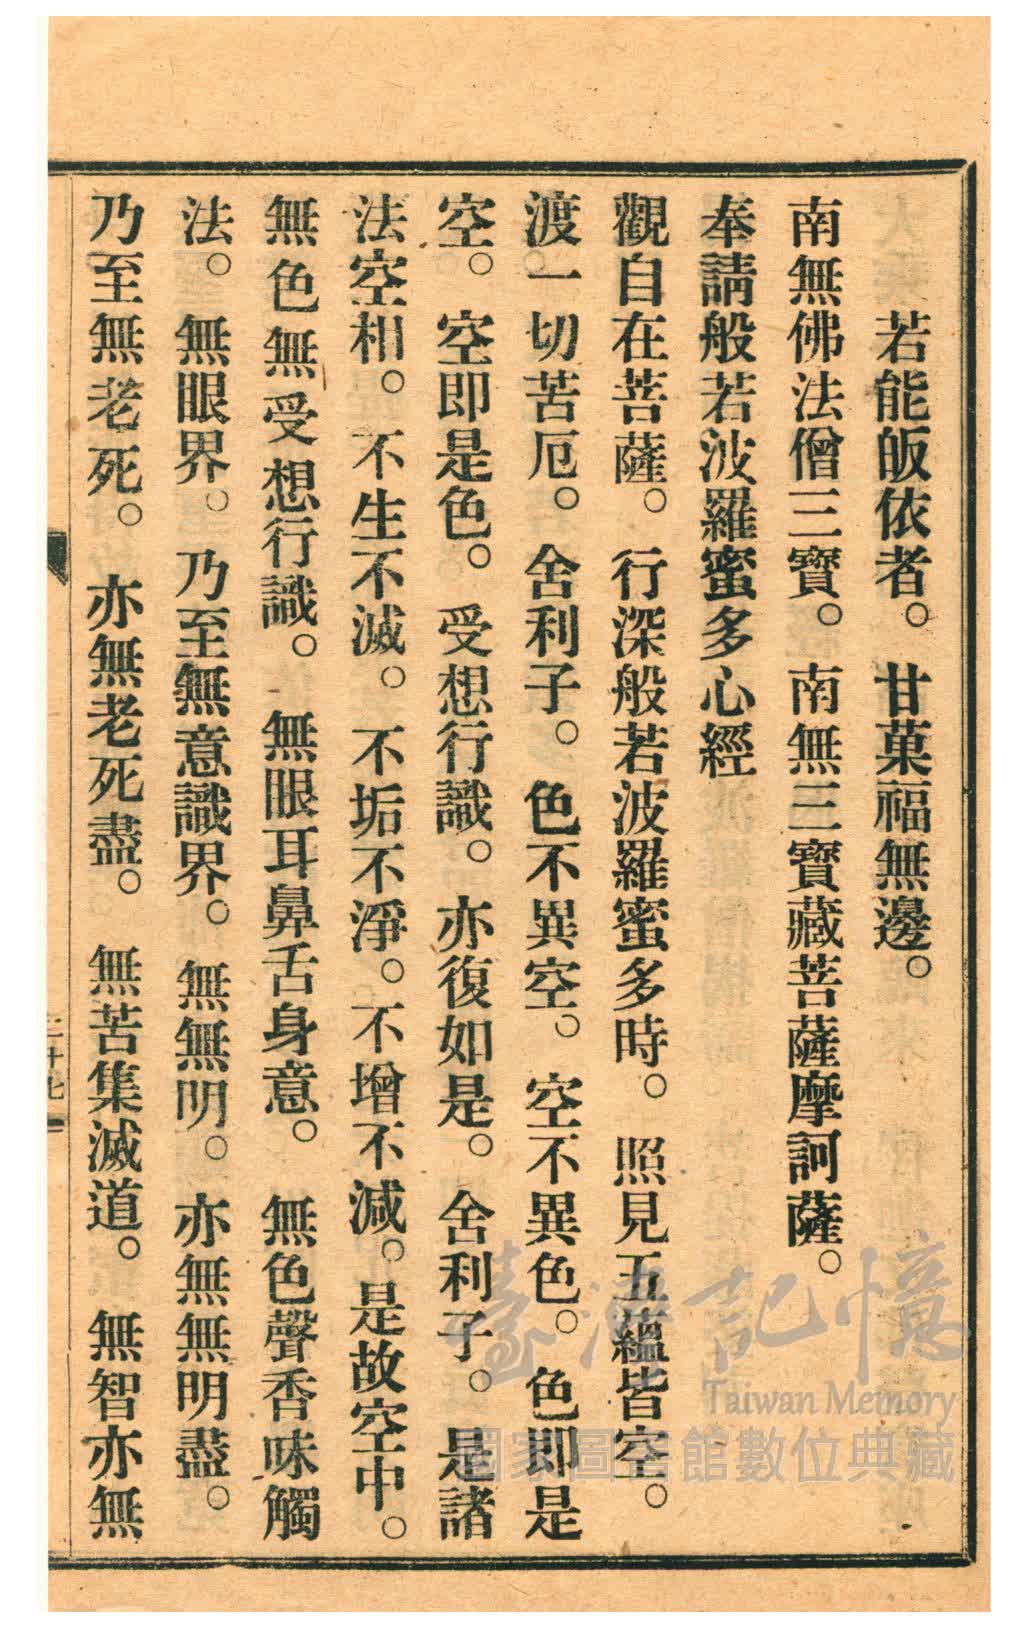 若能皈依者。甘菓福無邊。
南無佛法僧三寶。南無三寶藏菩薩摩訶薩。
奉請般若波羅蜜多心經
觀自在菩薩。行深般若波羅蜜多時。照見五蘊皆空。
渡一切苦厄。舍利子。色不異空。空不異色。色即是
空。空即是色。受想行識。亦復如是。舍利子。是諸
法空相。不生不滅。不垢不淨。不增不減。是故空中。
無色無受想行識。無眼耳鼻舌身意。無色聲香味觸
法。無眼界。乃至無意識界。無無明。亦無無明盡。
乃至無老死。亦無老死盡。無苦集滅道。無智亦無
臺灣記憶
Taiwan Memory
國家圖書館數位典藏